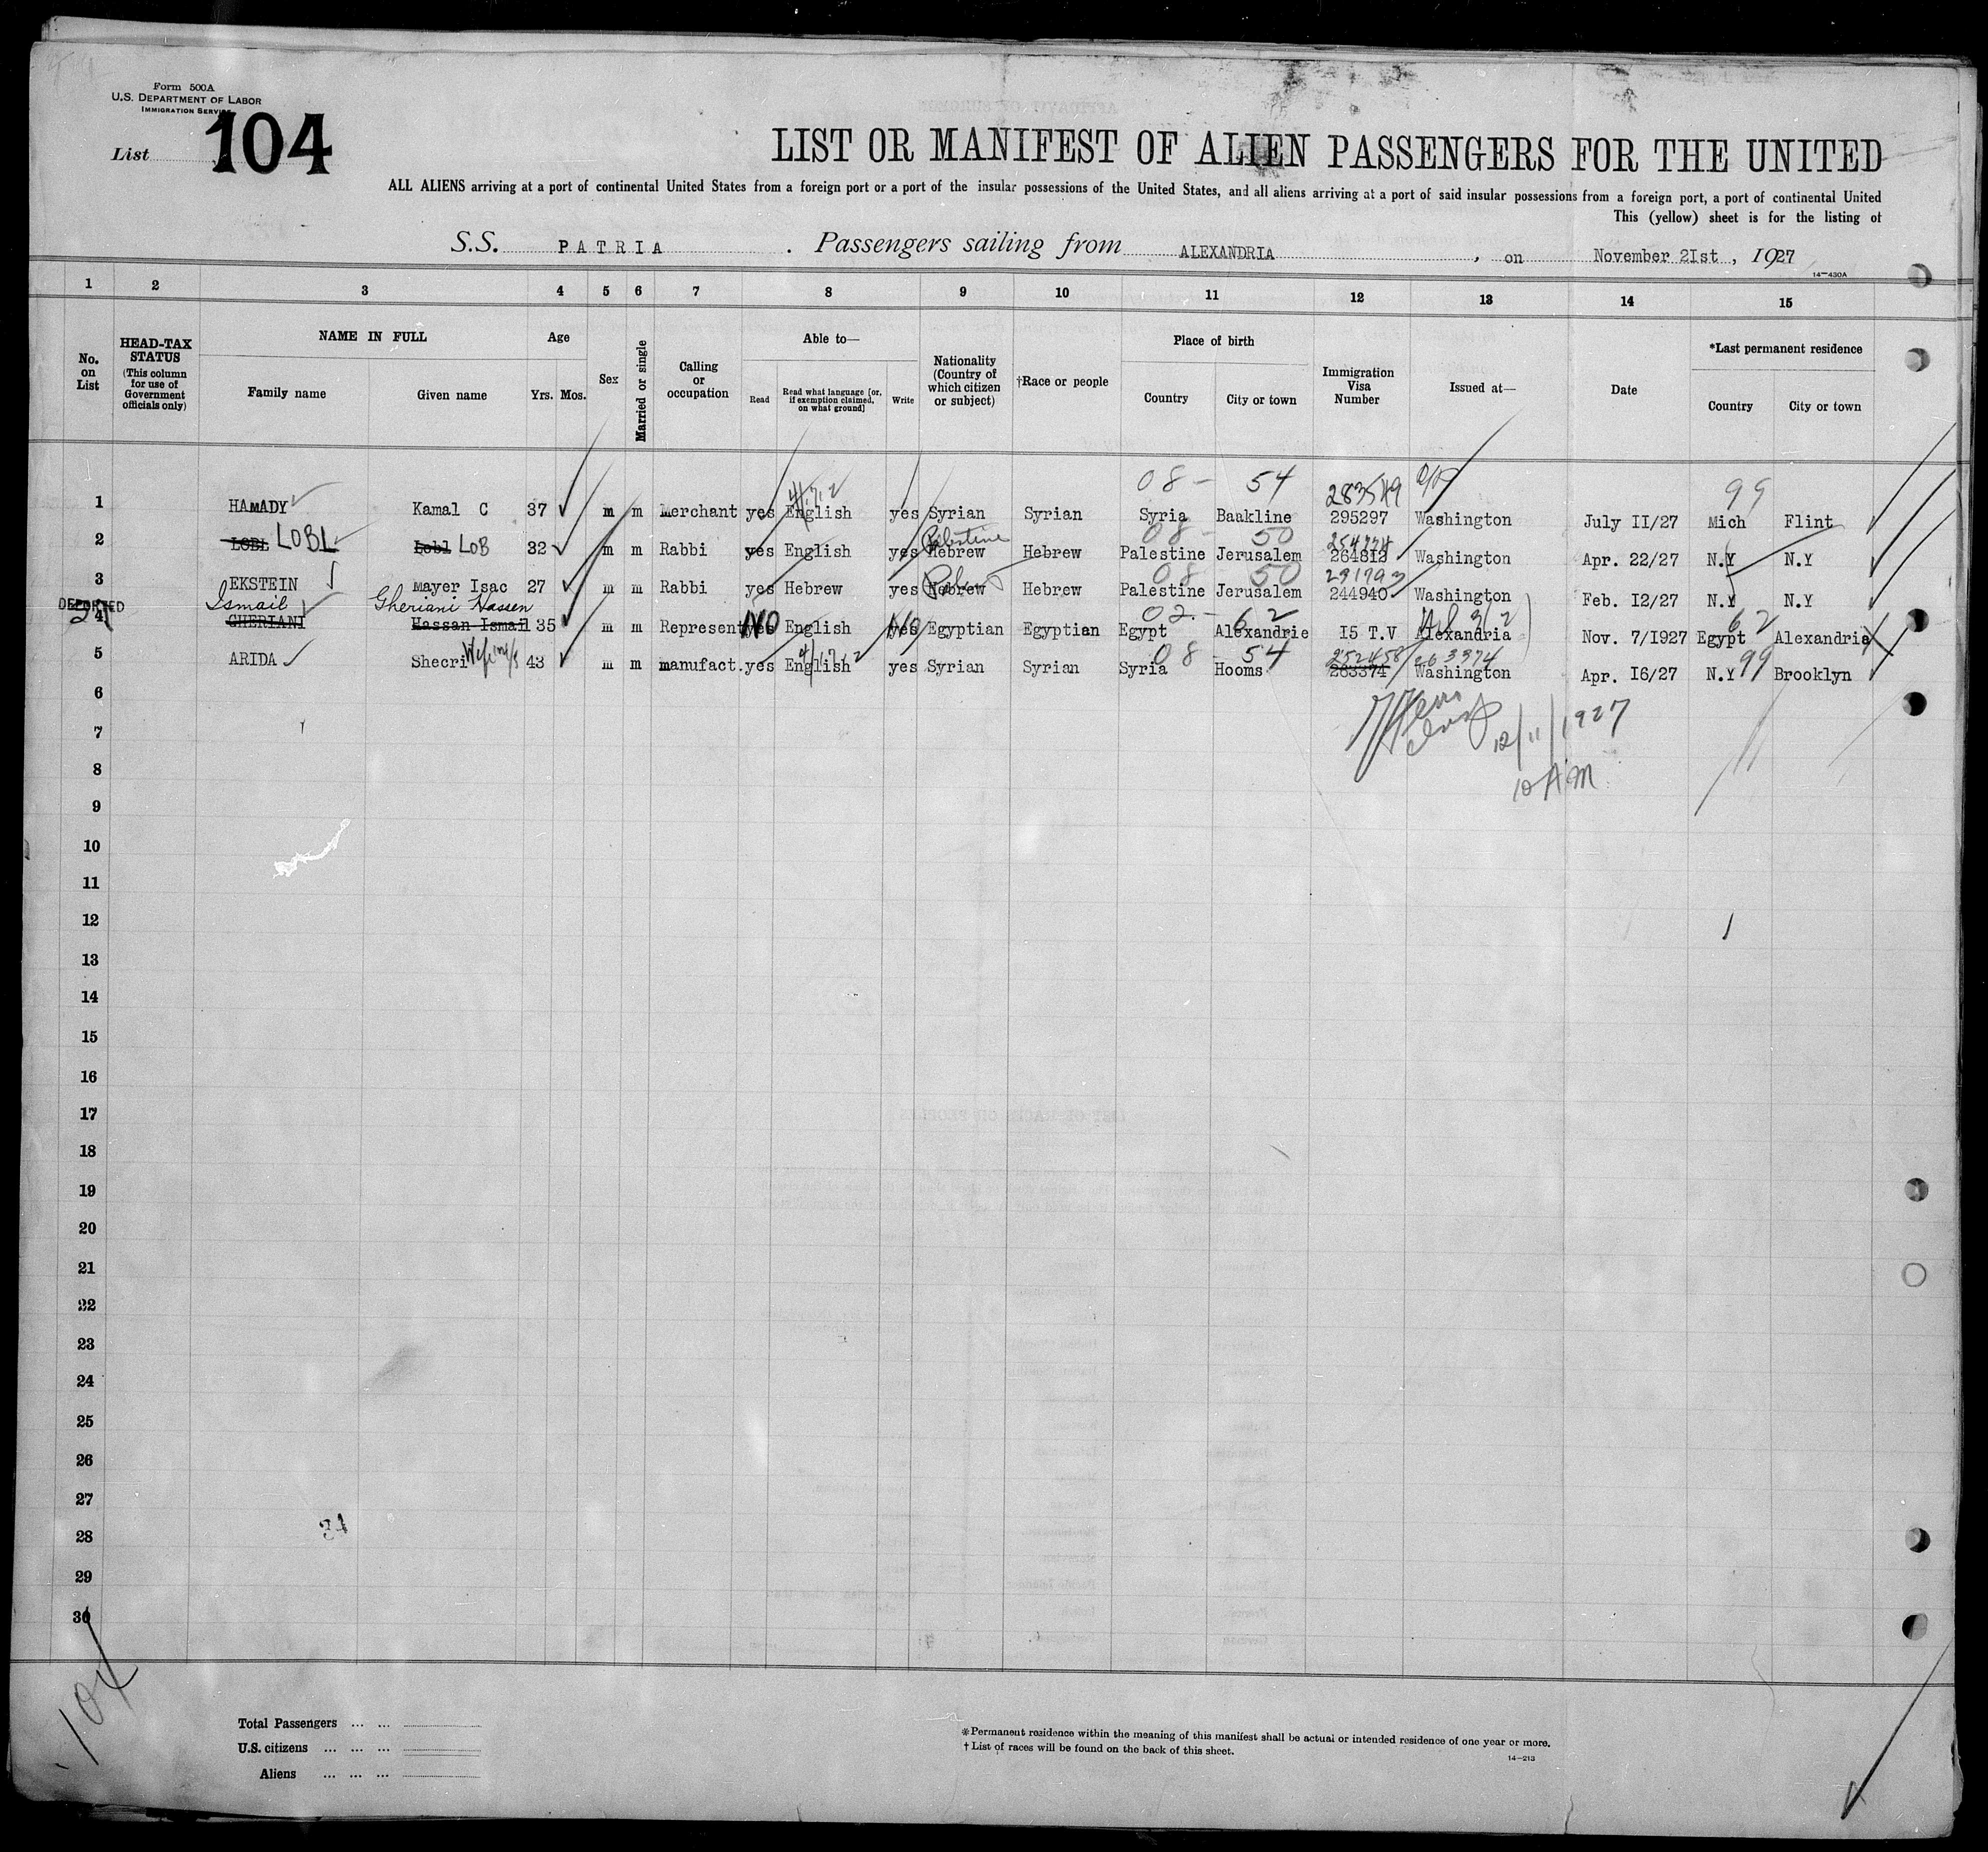 Form 500A
U.S. DEPARTMENT OF LABOR
IMMIGRATION SERVICE
List 104
LIST OR MANIFEST OF ALIEN PASSENGERS FOR THE UNITED
ALL ALIENS arriving at a port of continental United States from a foreign port or a port of the insular possessions of the United States, and all aliens arriving at a port of said insular possessions from a foreign port, a port of continental United
This (yellow) sheet is for the listing of
S.S. PATRIA . Passengers sailing from ALEXANDRIA , on November 21st , 1927
14-430A
1 2 3 4 5 6 7 8 9 10 11 12 13 14 15
No. on List
HEAD-TAX STATUS (This column for use of Government officials only)
NAME IN FULL
Family name Given name
Age
Yrs. Mos.
Sex
Married or single
Calling or occupation
Able to—
Read Read what language [or, if exemption claimed, on what ground] Write
Nationality (Country of which citizen or subject)
†Race or people
Place of birth
Country City or town
Immigration Visa Number
Issued at—
Date
*Last permanent residence
Country City or town
08 - 54 283549 99
1 HAMADY Kamal C 37 m m Merchant yes English yes Syrian Syrian Syria Baakline 295297 Washington July II/27 Mich Flint
Palestine 08 - 50 254774
2 LOBL LOBL Lobl LOB 32 m m Rabbi yes English yes Hebrew Hebrew Palestine Jerusalem 264812 Washington Apr. 22/27 N.Y N.Y
08 50 291793
3 EKSTEIN Mayer Isac 27 m m Rabbi yes Hebrew yes Hebrew Hebrew Palestine Jerusalem 244940 Washington Feb. I2/27 N.Y N.Y
DEPORTED Ismail Gheriani Hassen NO No 02 - 62 3/2 62
4 GHERIANI Hassan Ismail 35 m m Represent yes English yes Egyptian Egyptian Egypt Alexandrie I5 T.V Alexandria Nov. 7/1927 Egypt Alexandria
08 - 54 252458 263374 99
5 ARIDA Shecri 43 m m manufact. yes English yes Syrian Syrian Syria Hooms 263374 Washington Apr. I6/27 N.Y Brooklyn
6
12/11/1927
7
10 AM
8
9
10
11
12
13
14
15
16
17
18
19
20
21
22
23
24
25
26
27
28
29
30
104
Total Passengers ... ...
U.S. citizens ... ... ...
Aliens ... ... ...
*Permanent residence within the meaning of this manifest shall be actual or intended residence of one year or more.
† List of races will be found on the back of this sheet.
14-213